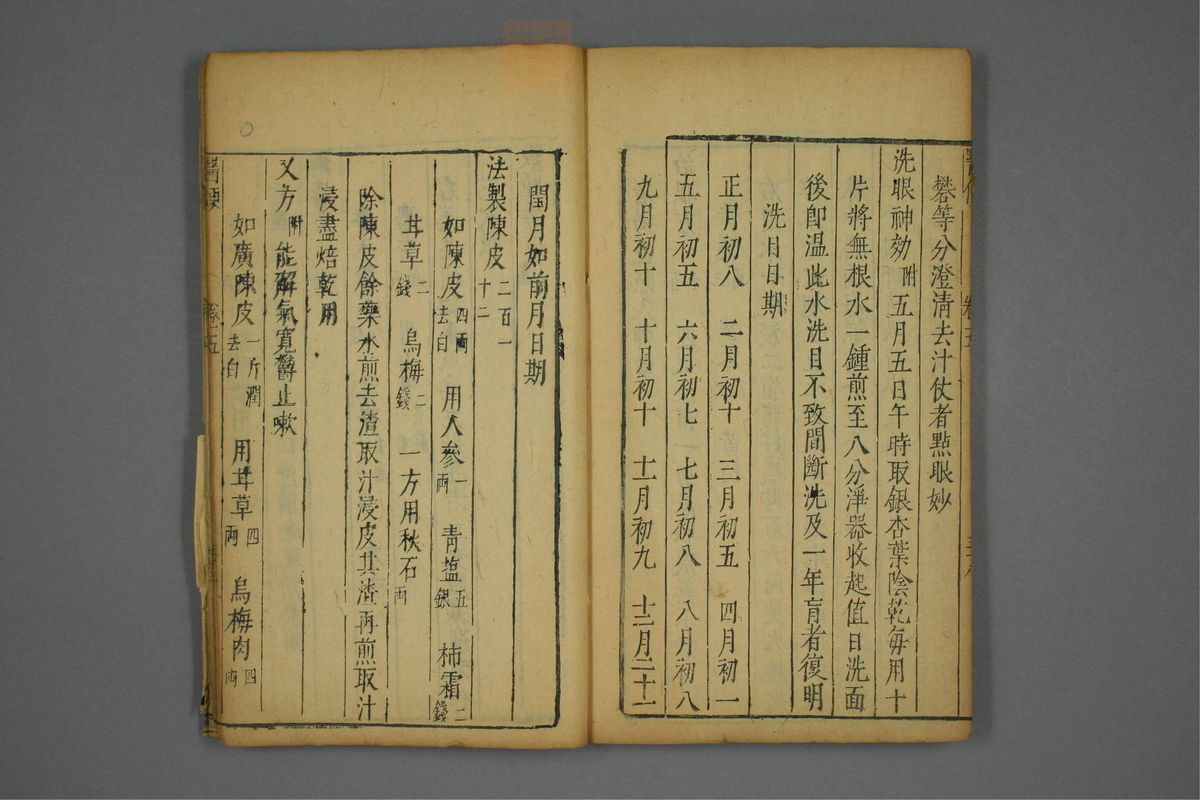 礬等分澄清去汁仗者點眼妙
洗眼神効附五月五日午時取銀杏葉陰乾每用十
片將無根水一鍾煎至八分淨器收起值日洗面
後卽温此水洗目不致間斷洗及一年肓者復明
洗目日期
正月初八 二月初十 三月初五 四月初一
五月初五 六月初七 七月初八 八月初八
九月初十 十月初十 十一月初九 十二月二十一
閏月如前月日期
法製陳皮 二百一十二
如陳皮 四兩去白 用人參 一兩 靑塩 五銀 柿霜 二錢
甘草 二錢 烏梅 二錢 一方用秋石 兩
除陳皮餘藥水煎去渣取汁浸皮其渣再煎取汁
浸盡焙乾用
又方附能解氣寬欝止嗽
如廣陳皮 一斤潤去白 用甘草 四兩 烏梅肉 四兩
卷之五